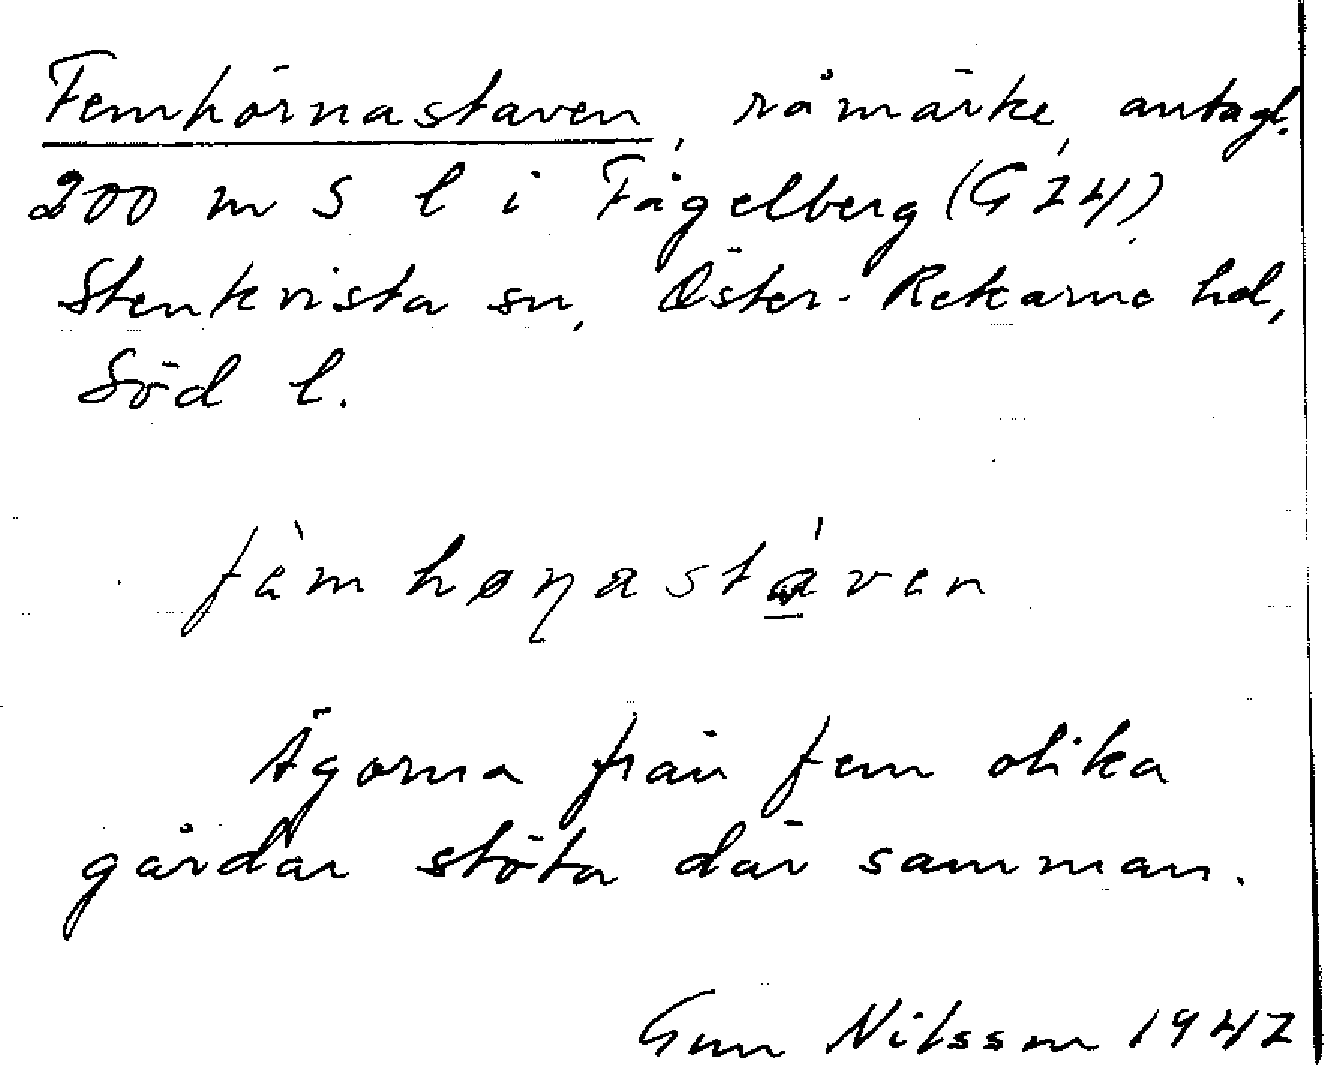 Femhörnastaven, råmärke, antagl.
200 m S l i Fågelberg (G 24)
Stenkvista sn, Öster-Rekarne hd,
Söd l.
fèmhøɳastáven
Ägorna från fem olika
gårdar stöta där samman.
Gun Nilsson 1947